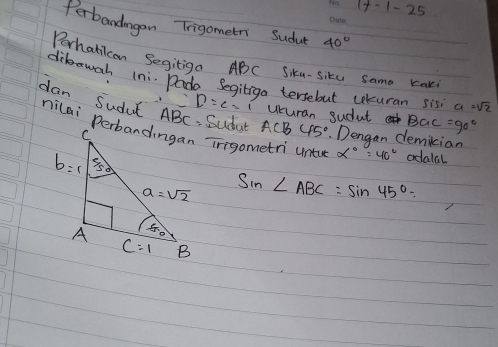 No
17-1-25
Date
Perbandingan Trigometri Sudut 40°
Perhatikan Segitiga ABC Siku-Siku sama kaki
dibawah ini. Pada segitiga tersebut ukuran sisi a = √2
b = c = 1 ukuran sudut BaC = 90°
dan Sudut ABC = Sudut ACB 45°. Dengan demikian
nilai Perbandingan Trigometri untuk α° = 40° adalah
C
45°
b = 1
a = √2
Sin ∠ ABC = Sin 45° =
45°
A
C = 1
B